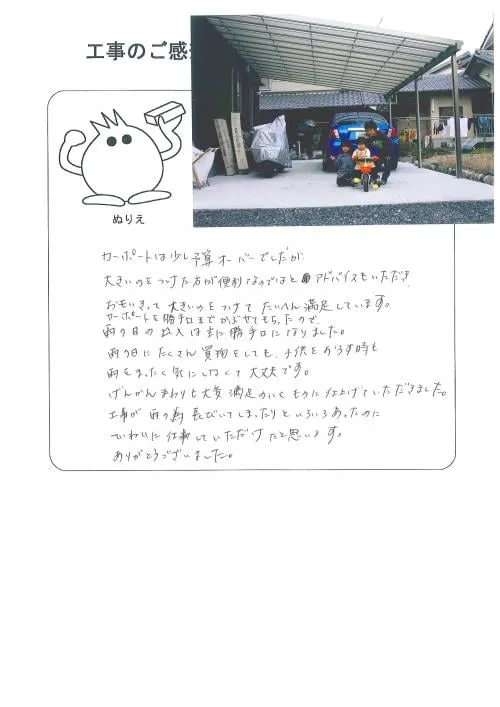 工事のご感
ぬりえ
カーポートは少し予算オーバーでしたが
大きいのをつけた方が便利なのではと アドバイスもいただき
おもいきって大きいのをつけて たいへん満足しています。
カーポートを勝手口までかぶせてもらったので、
雨の日の出入は主に勝手口になりました。
雨の日にたくさん買物をしても、子供をおろす時も
雨をまったく気にしなくて大丈夫です。
げんかんまわりも大変満足のいくものに仕上げていただきました。
工事が雨の為長びいてしまったりといろいろあったのに
ていねいに仕事していただけたと思います。
ありがとうございました。